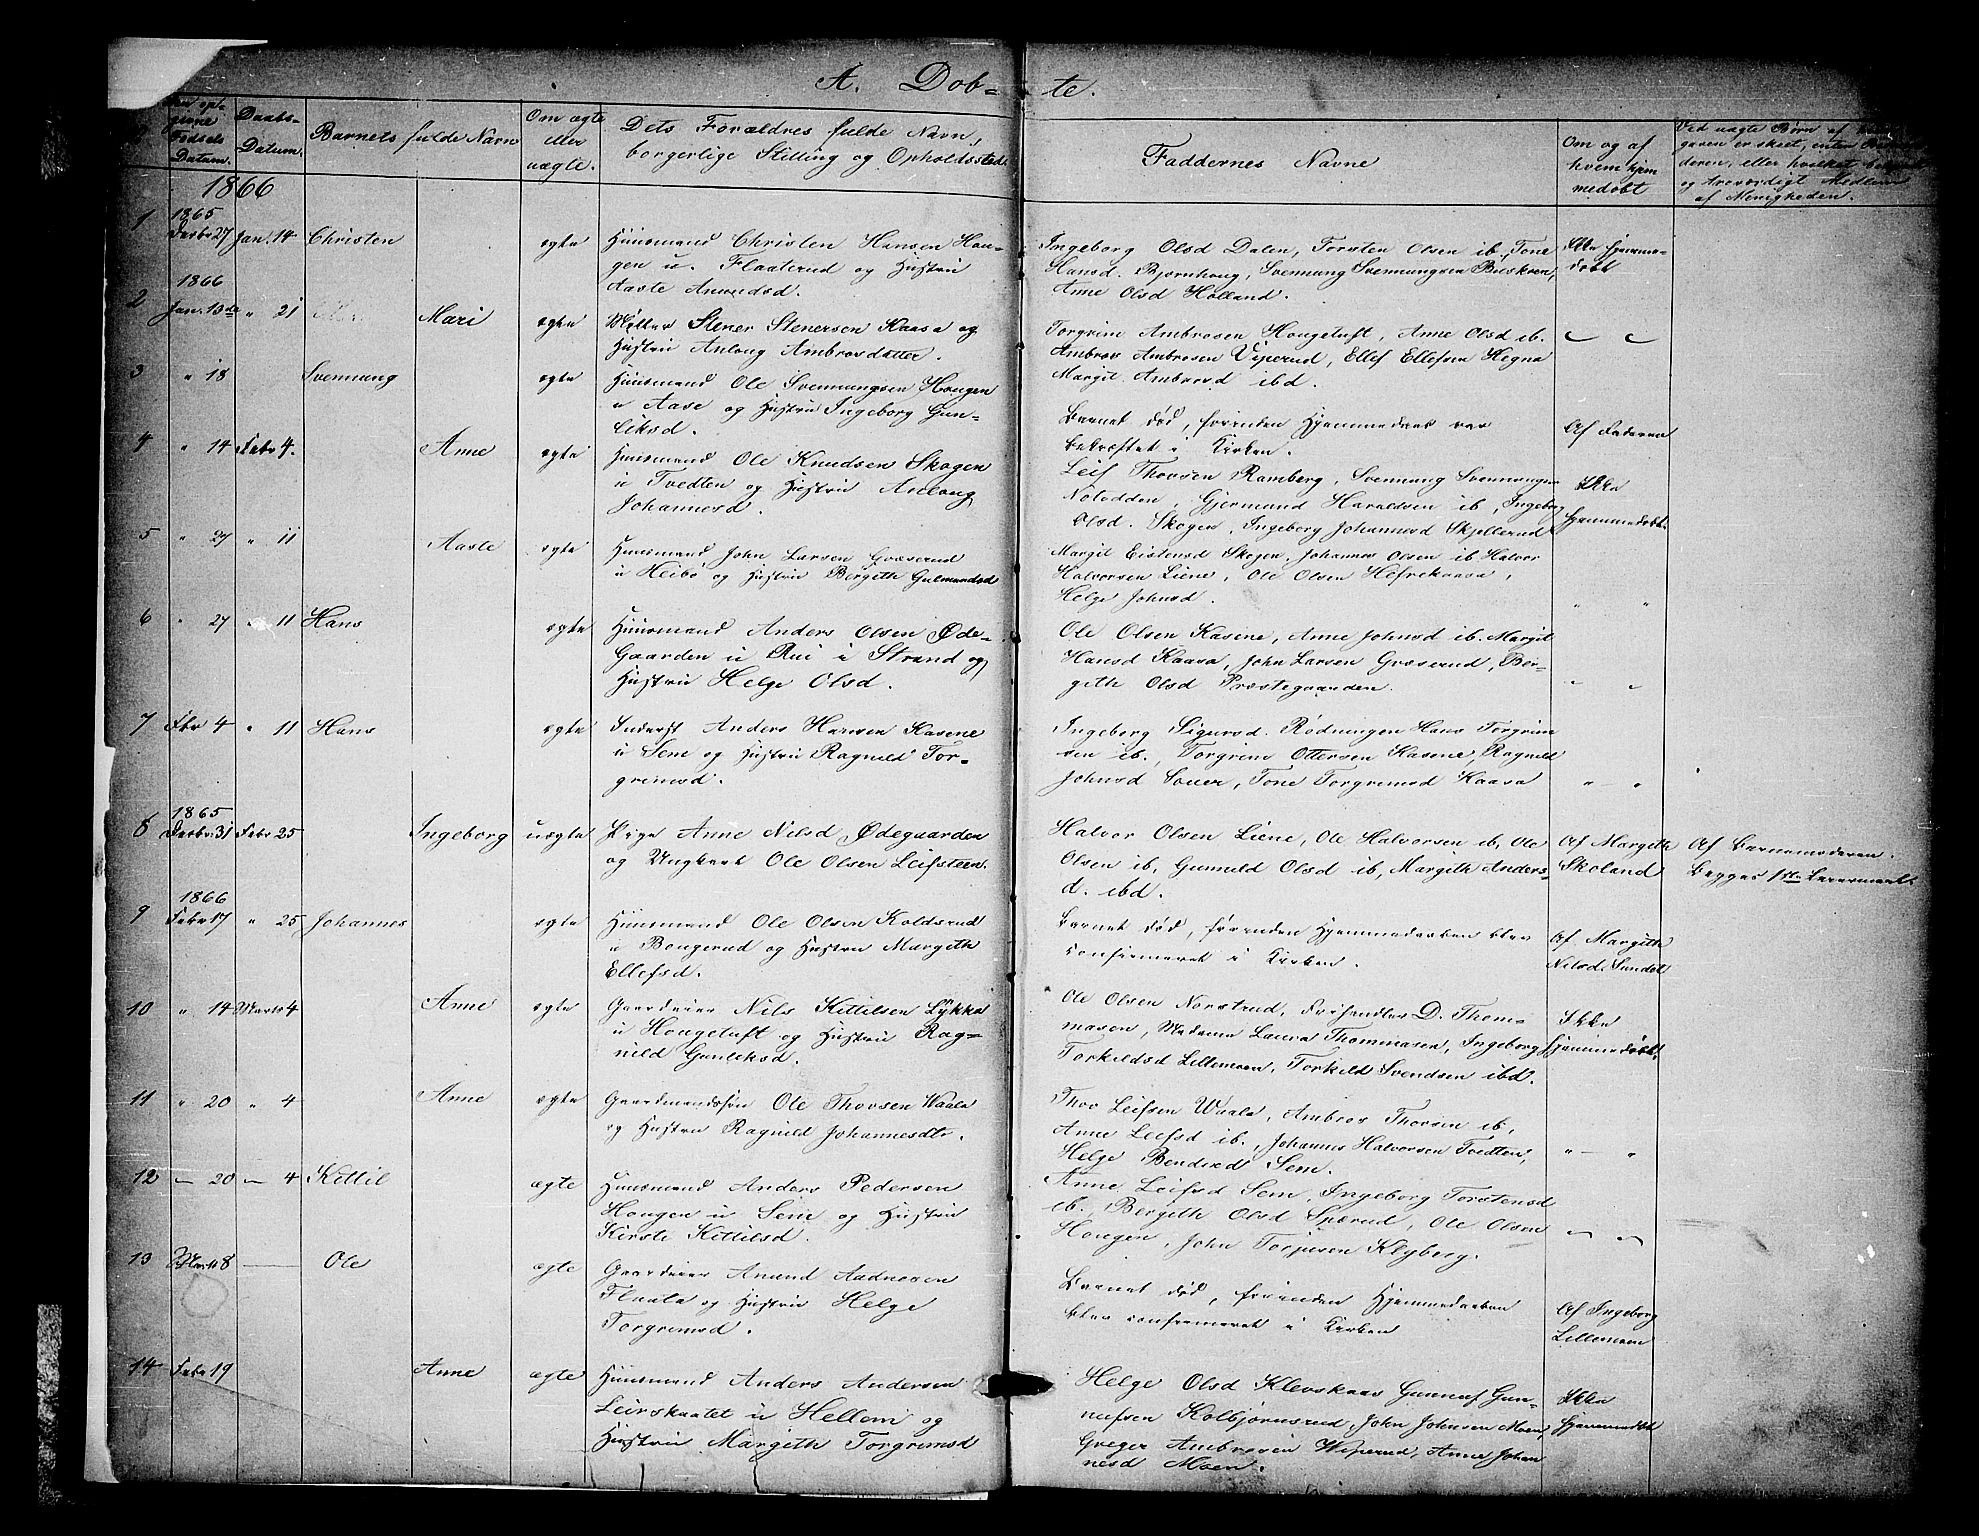 A. Døb-te.
Den op-
givne
Fødsels
Datum.
Daabs-
Datum.
Barnets fulde Navn
Om ægte
eller
uægte.
Dets Forældres fulde Navn,
borgerlige Stilling og Opholdssted
Faddernes Navne
Om og af
hvem hjem
medøbt
Ved uægte Børn af
gaven er skeet, enten
deren, eller hvilket
og troværdigt Medlem
af Menigheden.
1866
1865
1 Decbr 27 Jan. 14 Christen ægte
Huusmand Christen Hansen Hau-
gen u. Flaaterud og Hustru
Aaste Amundsd.
Ingeborg Olsd Dalen, Torsten Olsen ib, Tone
Hansd. Bjørnhaug, Svennung Svennungsen Braskeren,
Anne Olsd Holland.
Ikke hjemme-
døbt
1866
2 Jan. 13de " 21 Mari ægte
Møller Stener Stenersen Kaasa og
Hustru Anlaug Ambrosdatter.
Torgrim Ambrosen Hougetuft, Anne Olsd ib.
Ambros Ambrosen Viperud, Ellef Ellefsen Hegna
Margit Ambrosd ibd.
3 " 18 Svennung ægte
Huusmand Ole Svennungsen Haugen
u Aase og Hustru Ingeborg Gun-
liksd.
Barnet død, førinden Hjemmedaab var
bekræftet i Kirken.
Af Faderen
4 " 14 Febr 4. Anne ægte
Huusmand Ole Knudsen Skogen
u Tvedten og Hustru Anlaug
Johannesd.
Leif Thovsen Ramberg, Svennung Svennungsen
Notodden, Gjermund Haraldsen ib, Ingeborg
Olsd. Skogen, Ingeborg Johannesd Skjellerud
Ikke
hjemmedøbt.
5 " 27 " 11 Aaste ægte
Huusmand John Larsen Græserud
u Heibø og Hustru Bergith Gulmundsd
Margit Eistensd Skogen, Johannes Olsen ib Halvor
Halvorsen Liene, Ole Olsen Hefrekaasa,
Helge Johnsd.
" "
6 " 27 " 11 Hans ægte
Huusmand Anders Olsen Øde-
Gaarden u Rui i Strand og
Hustru Helge Olsd.
Ole Olsen Kasene, Anne Johnsd ib. Margit
Hansd Kaasa, John Larsen Græserud, Ber-
gith Olsd Præstegaarden.
" "
7 Fbr 4 " 11 Hans ægte
Inderst Anders Hansen Kasene
u Sem og Hustru Ragnild Tor-
grimsd.
Ingeborg Sigursd. Rødningen Hans Torgrim
sen ib., Torgrim Ottersen Kasene, Ragnild
Johnsd Sauer, Tone Torgrimsd Kaasa
" - "
1865
8 Decbr. 31 Febr 25 Ingeborg uægte
Pige Anne Nilsd Ødegaarden
og Ungkarl Ole Olsen Leifsteen.
Halvor Olsen Liene, Ole Halvorsen ib, Ole
Olsen ib, Gunnuld Olsd ib, Margith Anders-
d. ibd.
Af Margith
Skoland
Af Barnemoderen.
Begges 1ste Leiermaal.
1866
9 Febr 17 " 25 Johannes ægte
Huusmand Ole Olsen Koldsrud
u Bougerud og Hustru Margith
Ellefsd.
Barnet død, førinden Hjemmedaaben blev
confirmeret i Kirken.
Af Margith
Nilsd. Sundet
10 " 14 Marts 4 Anne ægte
Gaardeier Nils Kittilsen Lykka
u Hougetuft og Hustru Rag-
nild Gunleksd.
Ole Olsen Norstrud, Forhandler D. Thom-
masen, Madame Laura Thommasen, Ingeborg
Torkildsd Lillemoen, Torkild Svendsen ibd.
Ikke
hjemmedøbt.
11 " 20 " 4 Anne ægte
Gaardmandssøn Ole Thovsen Waala
og Hustru Ragnild Johannesdtr.
Thov Leifsen Waala, Ambros Thovsen ib,
Anne Leifsd ib., Johannes Halvorsen Tvedten,
Helge Bendixd Sem.
" - "
12 - 20 - 4 Kittil ægte
Huusmand Anders Pedersen
Haugen u Sem og Hustru
Kirste Kittilsd.
Anne Leifsd Sem, Ingeborg Torstensd
ib., Bergith Olsd Spærud, Ole Olsen
Hougen, John Torjusen Klyberg.
13 Marts 8 Ole ægte
Gaardeier Amund Aadnesen
Flaata og Hustru Helge
Torgrimsd.
Barnet død, førinden Hjemmedaaben
blev confirmeret i Kirken
Af Ingeborg
Lillemoen
14 Febr 19 Anne ægte
Huusmand Anders Andersen
Leirskaatet u Hellem og
Hustru Margith Torgrimsd
Helge Olsd Klevskaas Gunnuf Gun-
nufsen Kolbjørnsrud, John Johnsen Moen,
Greger Ambrosen Wiperud, Anne Johan
nesd Moen.
Ikke
hjemmedøbt